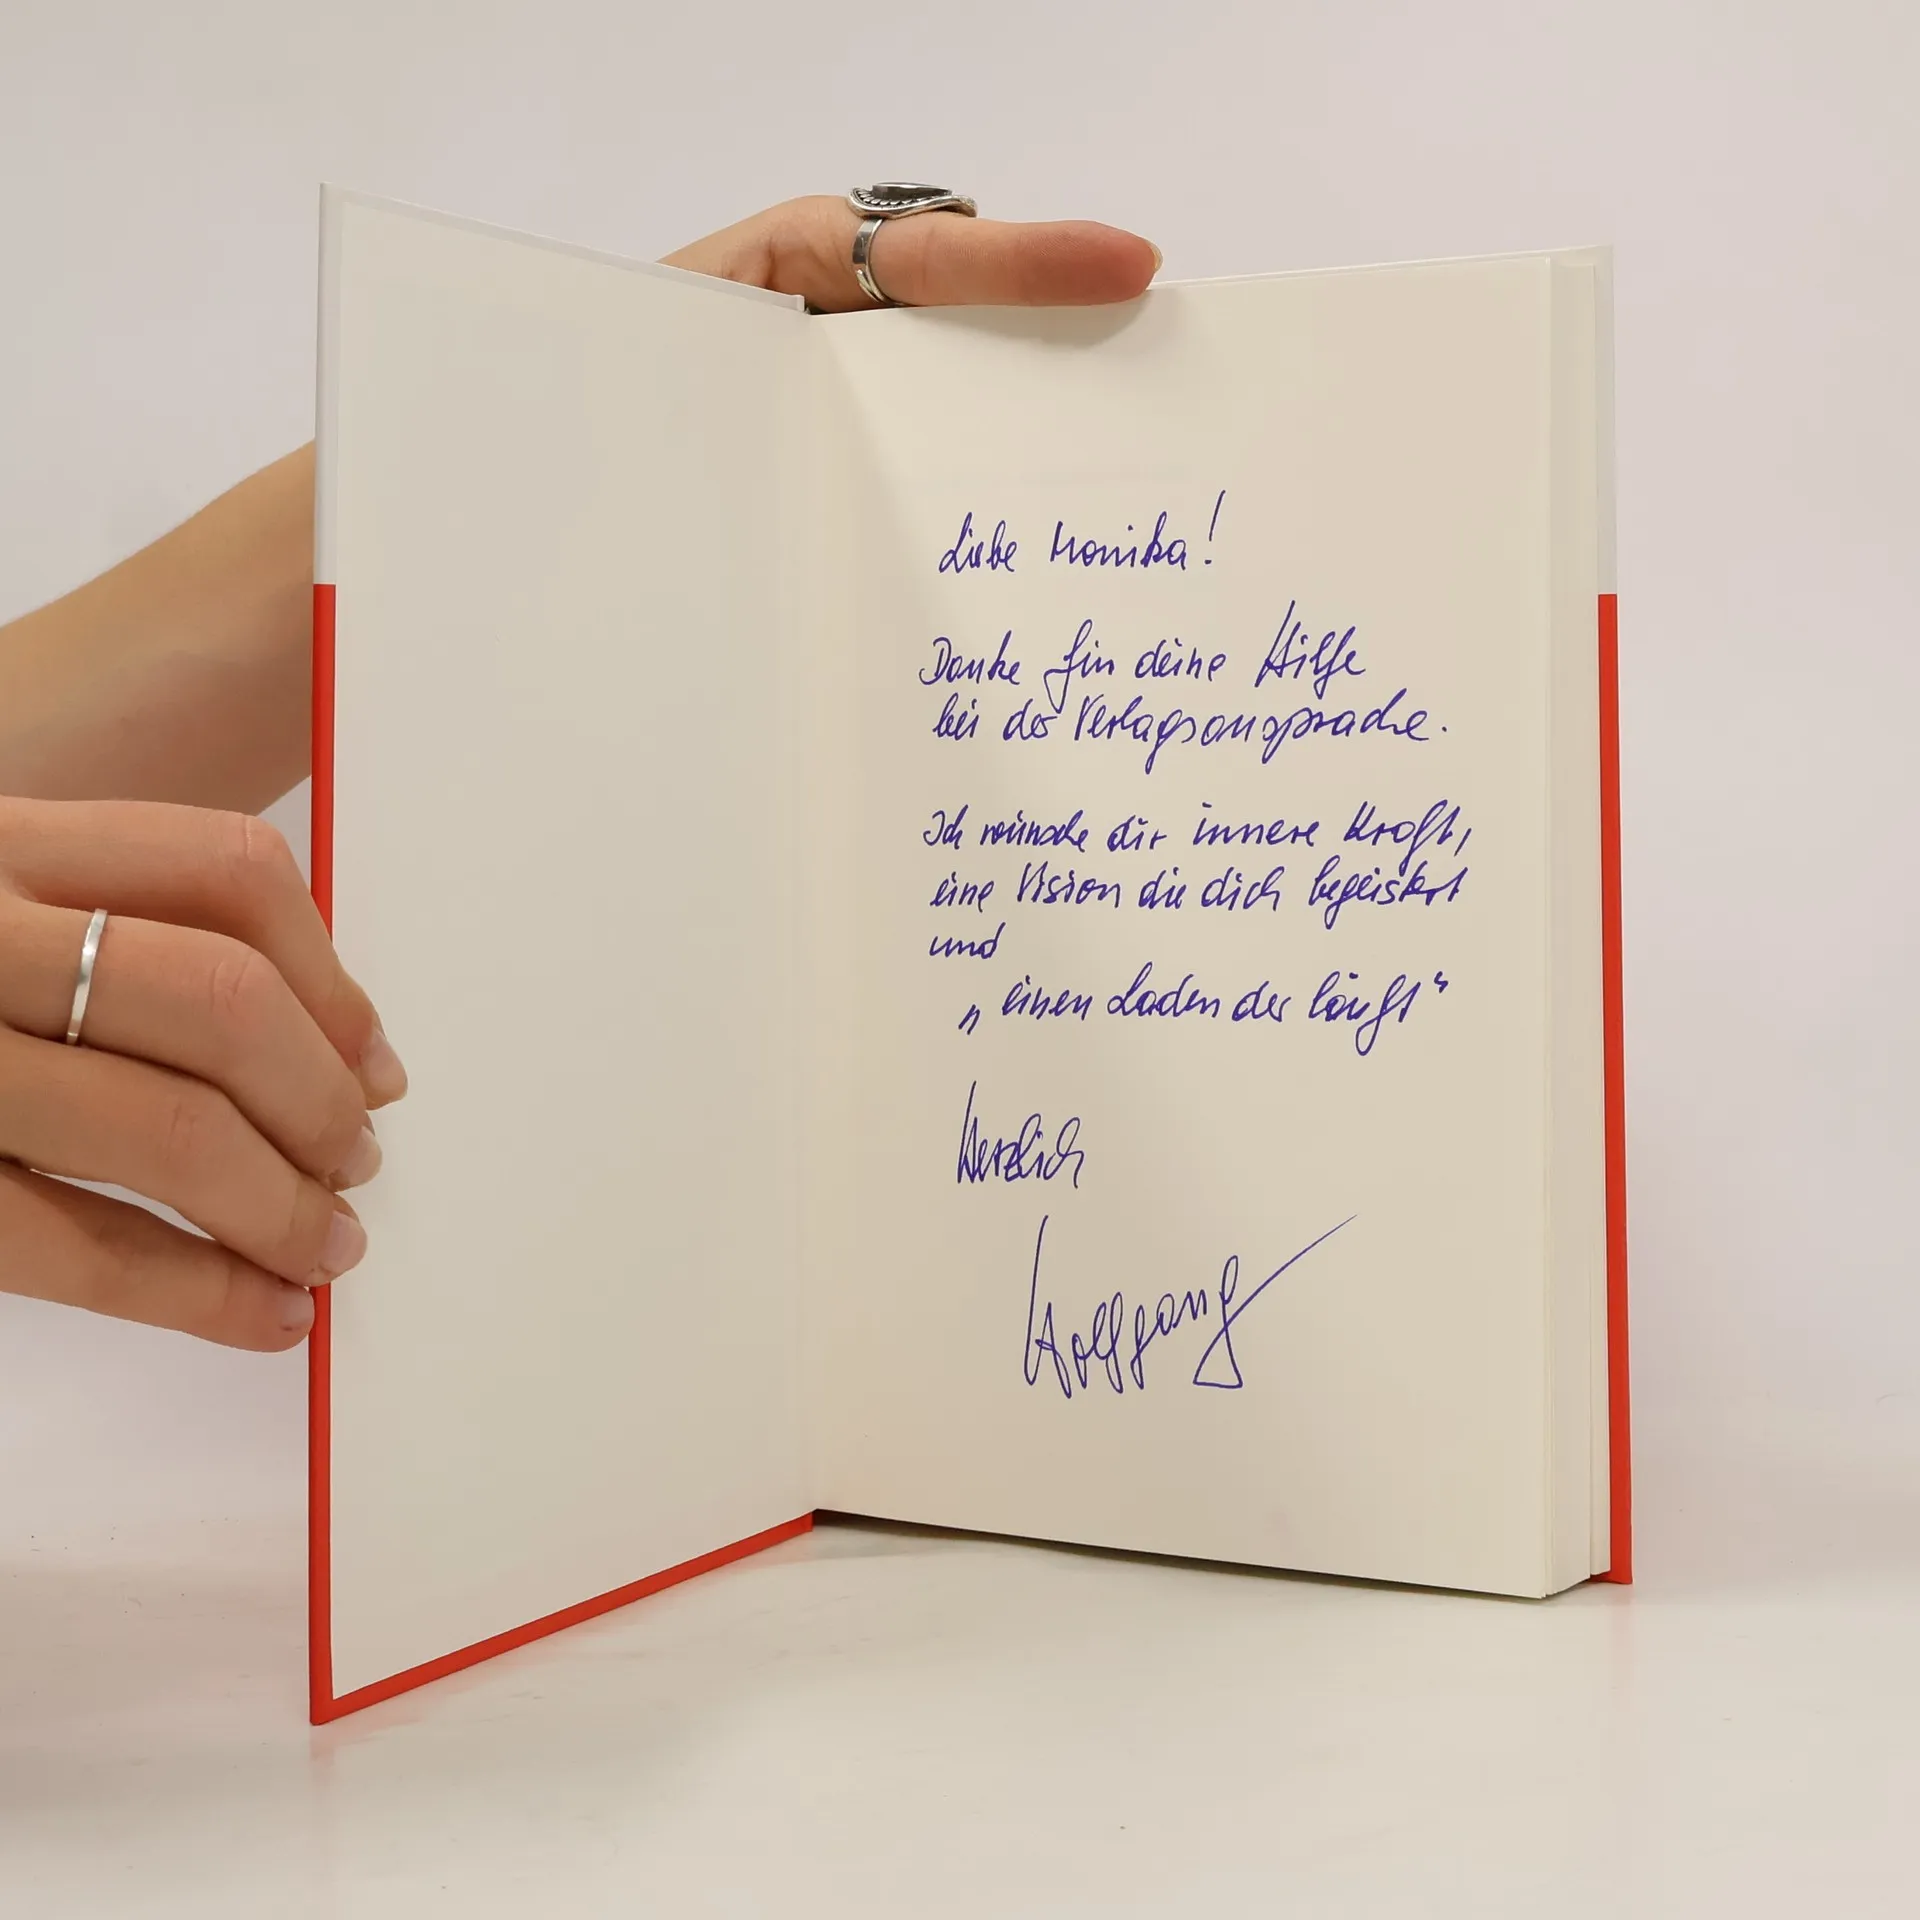 Liebe Monika!
Danke für deine Hilfe
bei der Verlagsansprache.
Ich wünsche dir innere Kraft,
eine Vision die dich begeistert
und
„einen Laden der läuft“
Herzlich
Wolfgang